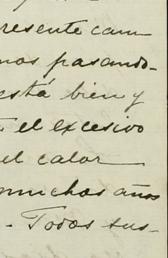 presente cam
mos pasando-
está bien y
el excesivo
el calor
muchos años
. Todos sus-